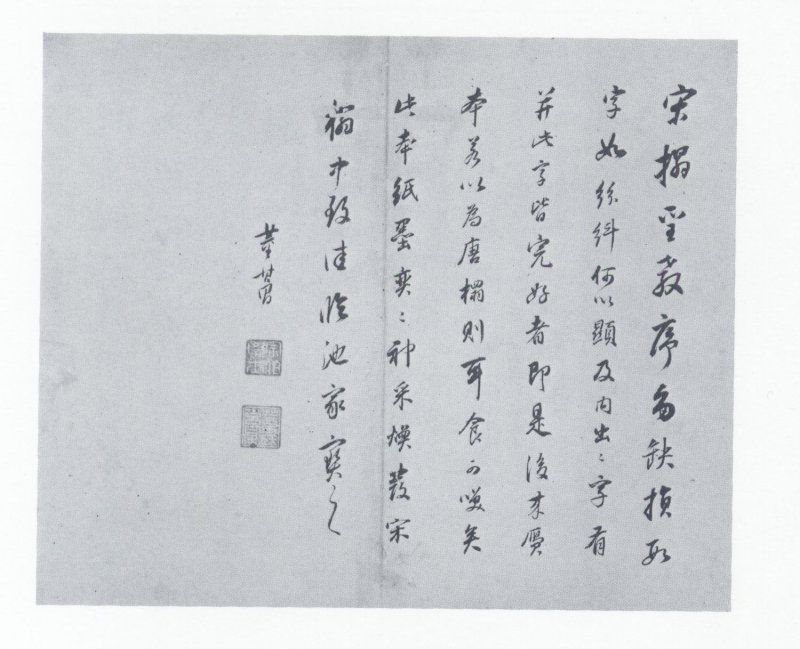 宋搨聖教序多缺損數
字如紛糾何以顯及內出々字有
并此字皆完好者即是後來贋
本若以為唐搨則耳食可咲矣
此本紙墨奕々神采煥發宋
搨中致佳臨池家寶之
董其昌